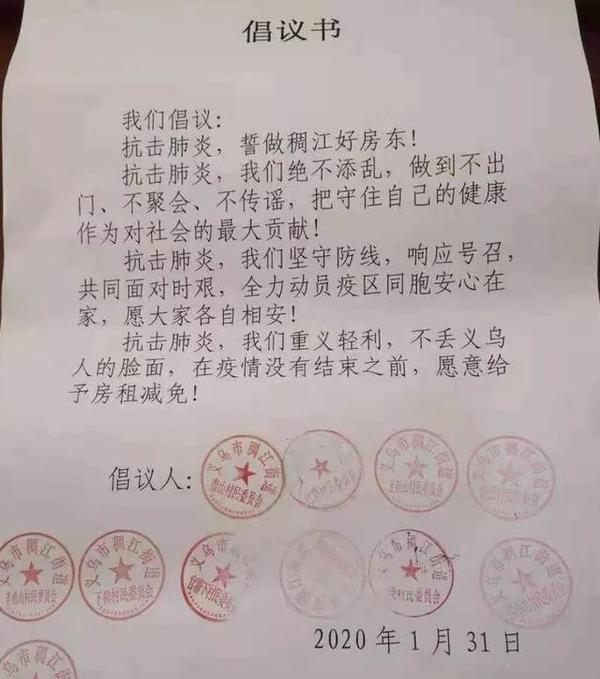 倡议书
我们倡议：
抗击肺炎，誓做稠江好房东！
抗击肺炎，我们绝不添乱，做到不出
门、不聚会、不传谣，把守住自己的健康
作为对社会的最大贡献！
抗击肺炎，我们坚守防线，响应号召，
共同面对时艰，全力动员疫区同胞安心在
家，愿大家各自相安！
抗击肺炎，我们重义轻利，不丢义乌
人的脸面，在疫情没有结束之前，愿意给
予房租减免！
倡议人：
义乌市稠江街道
村民委员会
义乌市稠江街道
村民委员会
义乌市稠江街道
义乌市稠江街道
村民委员会
义乌市稠江街道
下柳村民委员会
2020年1月31日